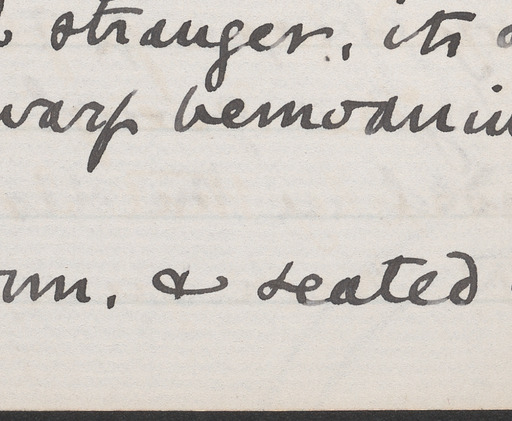 stranger, its
warp bemoanin
& seated